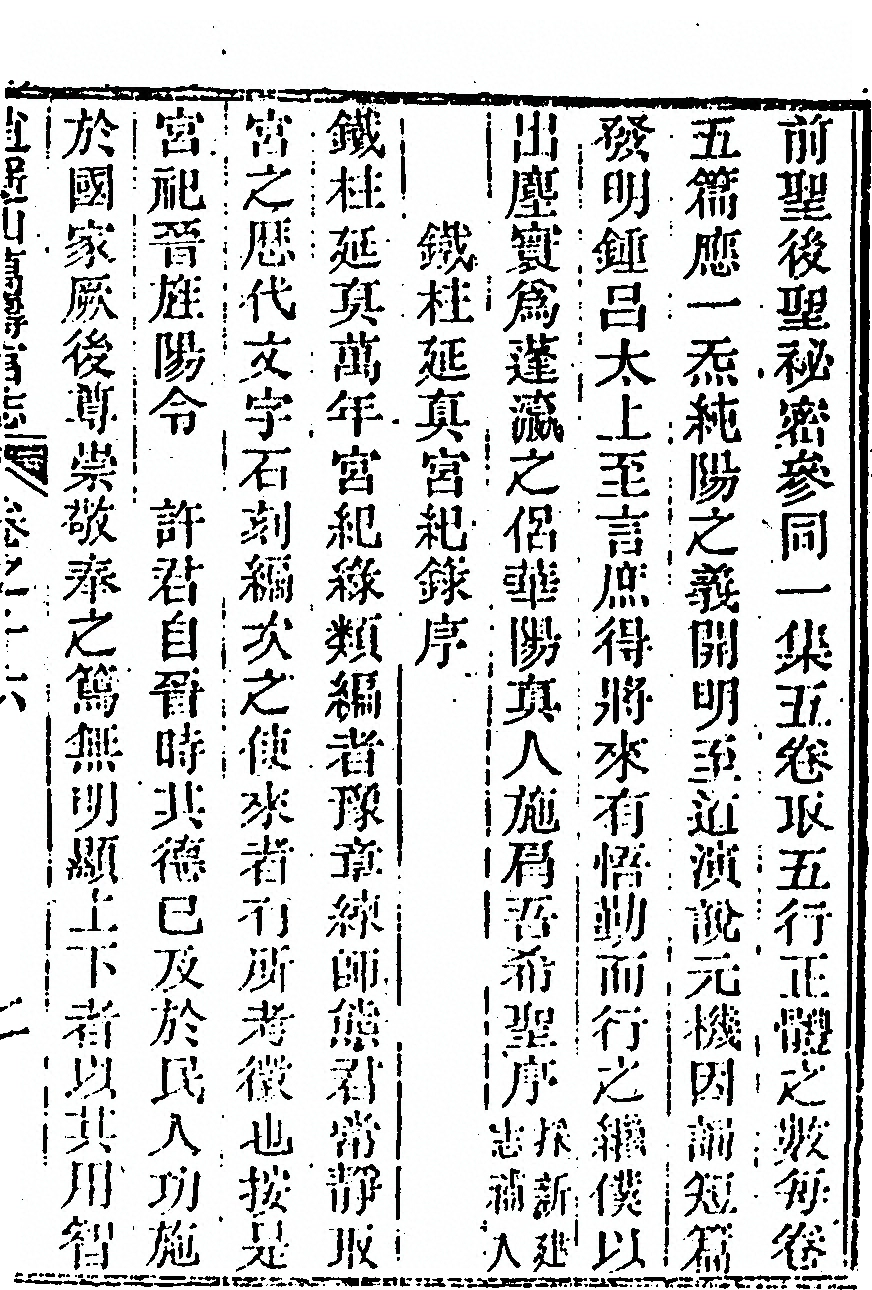 前聖後聖祕密參同一集五卷取五行正體之數每卷
五篇應一炁純陽之義開明至道演說元機因誦短篇
發明鍾呂太上至言庶得將來有悟勤而行之繼僕以
出塵實爲蓬瀛之侶華陽真人施肩吾希聖序採新建
志補入
鐵柱延真宮紀錄序
鐵柱延真萬年宮紀錄類編者豫章練師熊君常靜取
宮之歷代文字石刻編次之使來者有所考徵也按是
宮祀晉旌陽令 許君自晉時其德已及於民人功施
於國家厥後尊崇敬奉之篤無明顯上下者以其用智
逍遙山萬壽宮志 卷之十六